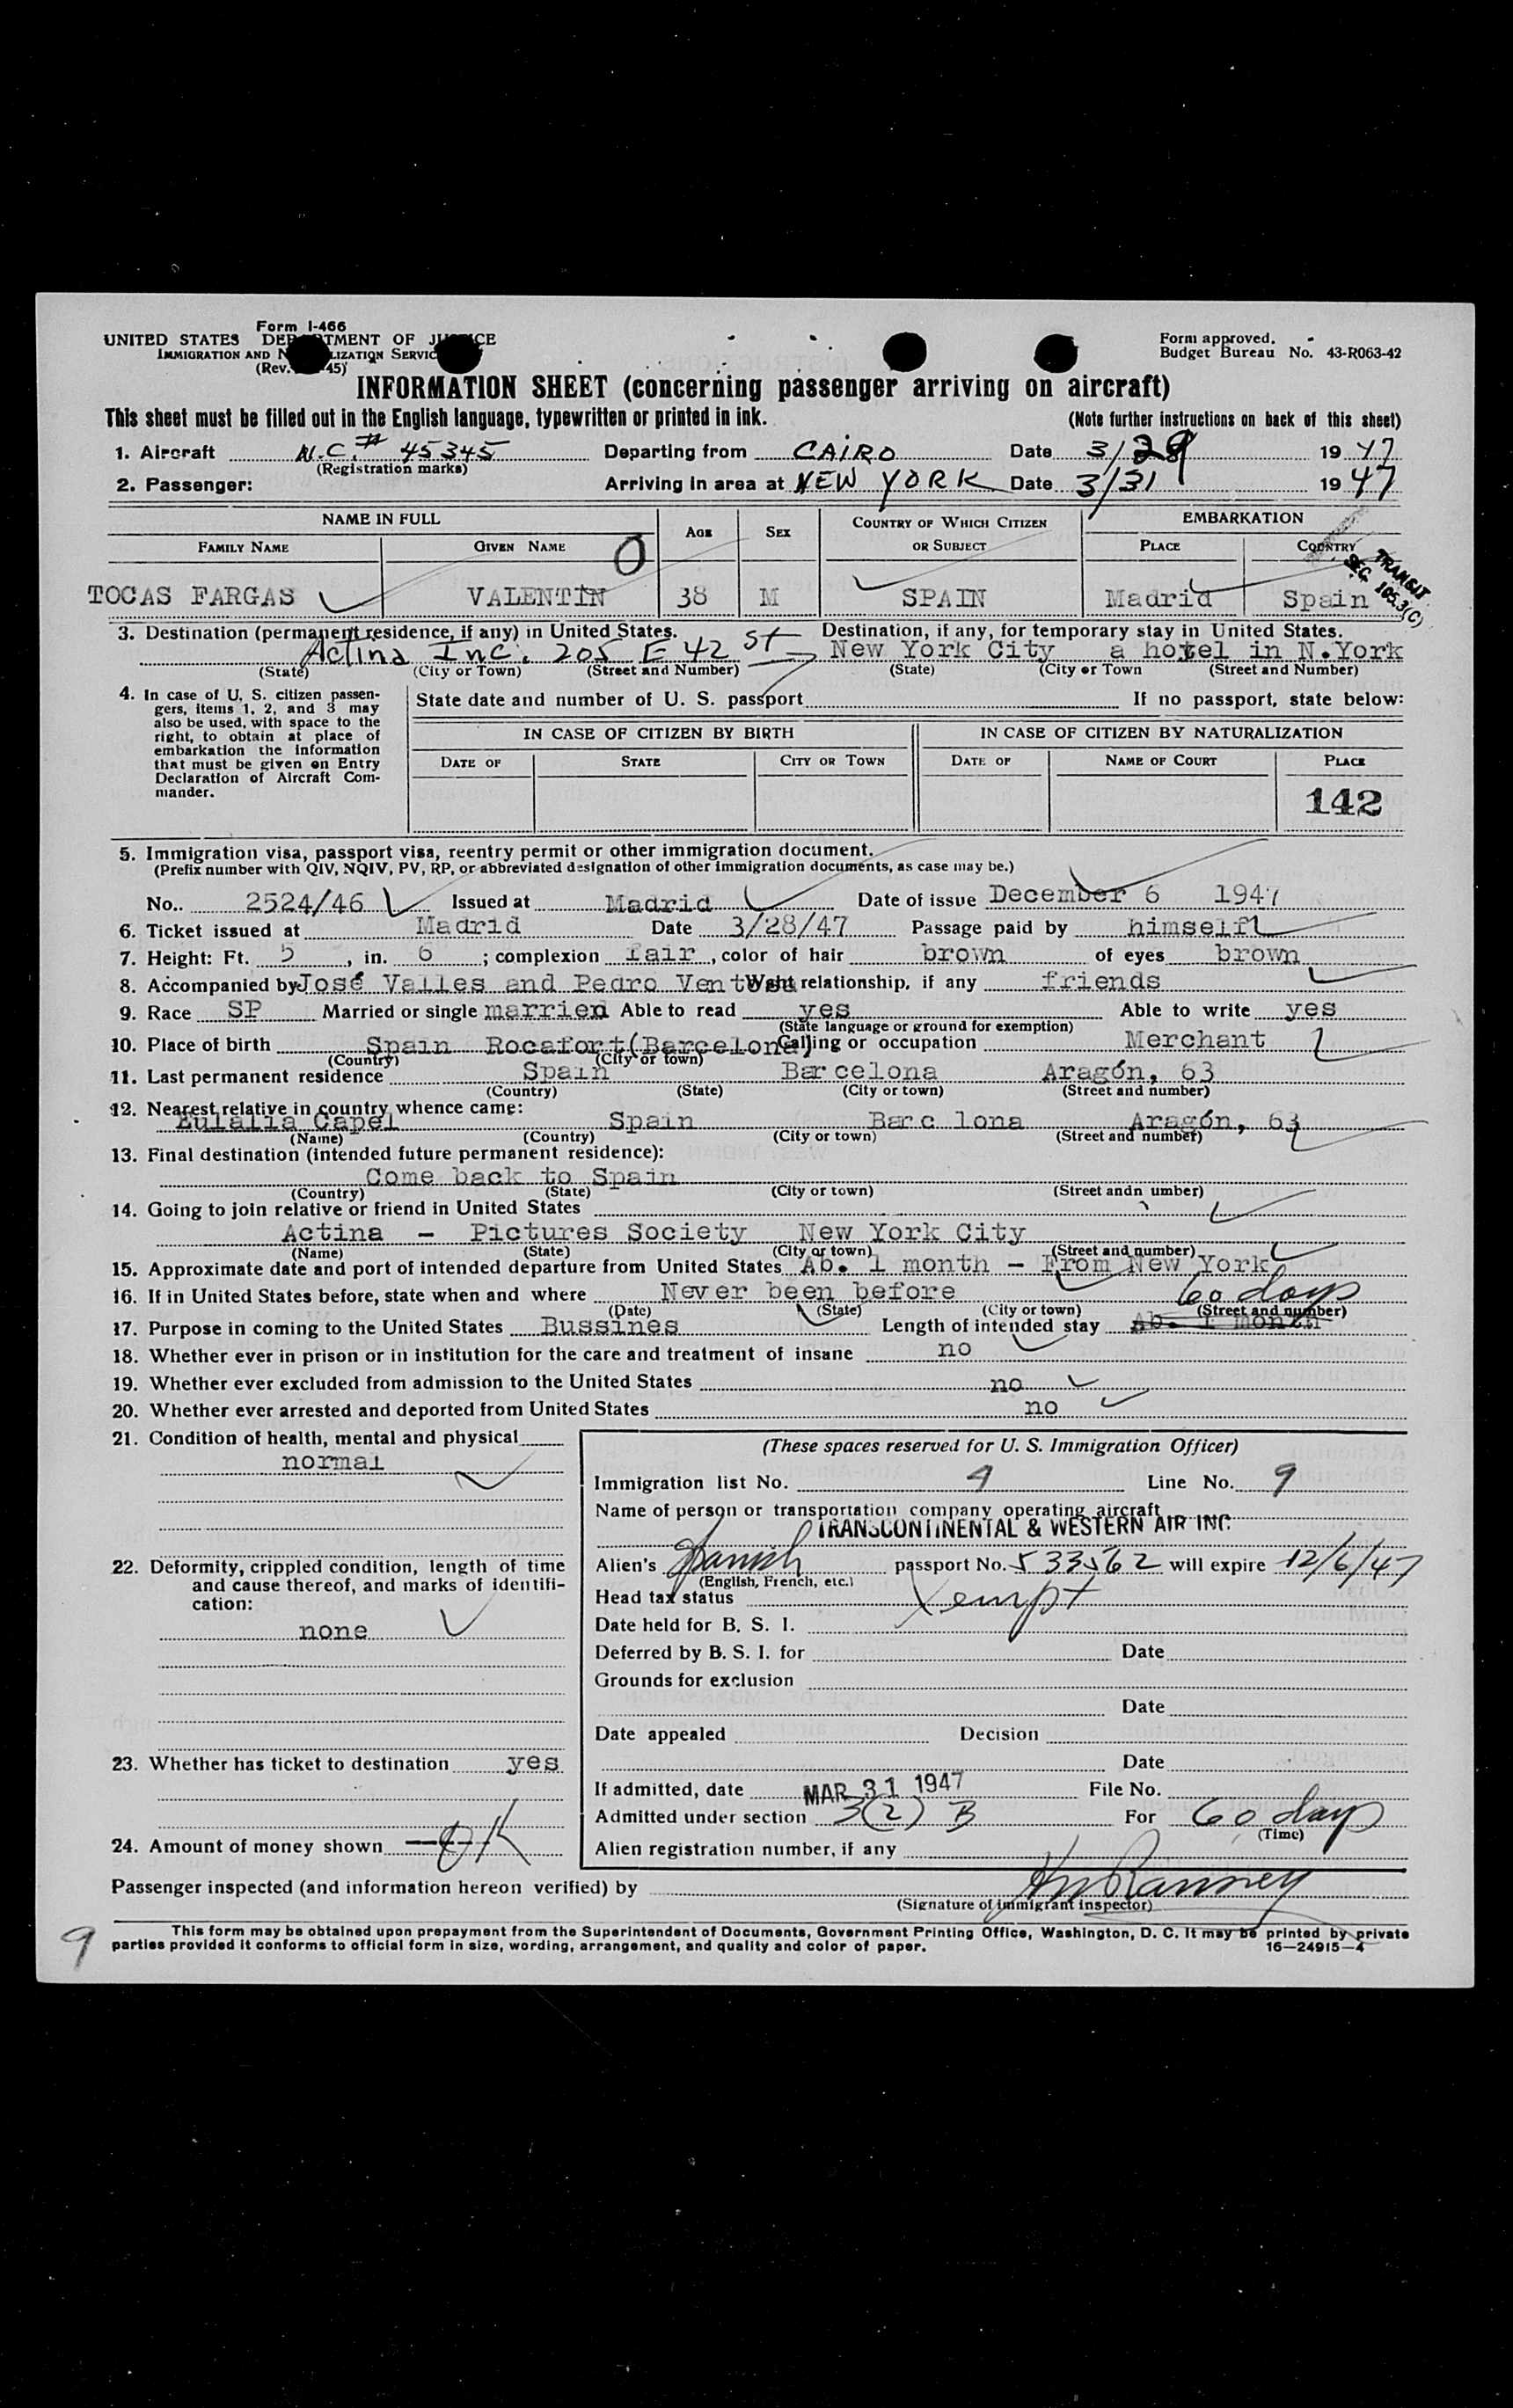 Form I-466
UNITED STATES DEPARTMENT OF JUSTICE
Form approved.
IMMIGRATION AND NATURALIZATION SERVICE
Budget Bureau No. 43-R063-42
(Rev. 45)
INFORMATION SHEET (concerning passenger arriving on aircraft)
This sheet must be filled out in the English language, typewritten or printed in ink. (Note further instructions on back of this sheet)
1. Aircraft N.C.# 45345 Departing from CAIRO Date 3/29 1947
(Registration marks)
2. Passenger: Arriving in area at NEW YORK Date 3/31 1947
NAME IN FULL AGE SEX COUNTRY OF WHICH CITIZEN OR SUBJECT EMBARKATION
FAMILY NAME GIVEN NAME PLACE COUNTRY
0
TRANSIT
SEC. 165.3(C)
TOCAS FARGAS VALENTIN 38 M SPAIN Madrid Spain
3. Destination (permanent residence, if any) in United States. Destination, if any, for temporary stay in United States.
Actina Inc. 205 E 42 St New York City a hotel in N.York
(State) (City or Town) (Street and Number) (State) (City or Town (Street and Number)
4. In case of U. S. citizen passen-
gers, items 1, 2, and 3 may
also be used, with space to the
right, to obtain at place of
embarkation the information
that must be given on Entry
Declaration of Aircraft Com-
mander.
State date and number of U. S. passport If no passport, state below:
IN CASE OF CITIZEN BY BIRTH IN CASE OF CITIZEN BY NATURALIZATION
DATE OF STATE CITY OR TOWN DATE OF NAME OF COURT PLACE
142
5. Immigration visa, passport visa, reentry permit or other immigration document.
(Prefix number with QIV, NQIV, PV, RP, or abbreviated designation of other immigration documents, as case may be.)
No.. 2524/46 Issued at Madrid Date of issue December 6 1947
6. Ticket issued at Madrid Date 3/28/47 Passage paid by himself
7. Height: Ft. 5, in. 6; complexion fair, color of hair brown of eyes brown
8. Accompanied by José Valles and Pedro Ventosa What relationship, if any friends
9. Race SP Married or single married Able to read yes Able to write yes
(State language or ground for exemption)
10. Place of birth Spain Rocafort(Barcelona) Calling or occupation Merchant
(Country) (City or town)
11. Last permanent residence Spain Barcelona Aragón, 63
(Country) (State) (City or town) (Street and number)
12. Nearest relative in country whence came:
Eulalia Capel Spain Barc lona Aragón, 63
(Name) (Country) (City or town) (Street and number)
13. Final destination (intended future permanent residence):
Come back to Spain
(Country) (State) (City or town) (Street andn umber)
14. Going to join relative or friend in United States
Actina - Pictures Society New York City
(Name) (State) (City or town) (Street and number)
15. Approximate date and port of intended departure from United States Ab. 1 month - From New York
16. If in United States before, state when and where Never been before 60 days
(Date) (State) (City or town) (Street and number)
17. Purpose in coming to the United States Bussines Length of intended stay Ab. 1 month
18. Whether ever in prison or in institution for the care and treatment of insane no
19. Whether ever excluded from admission to the United States no
20. Whether ever arrested and deported from United States no
21. Condition of health, mental and physical
normal
22. Deformity, crippled condition, length of time
and cause thereof, and marks of identifi-
cation:
none
23. Whether has ticket to destination yes
24. Amount of money shown OK
(These spaces reserved for U. S. Immigration Officer)
Immigration list No. 4 Line No. 9
Name of person or transportation company operating aircraft
TRANSCONTINENTAL & WESTERN AIR INC.
Alien's Spanish passport No. 533562 will expire 12/6/47
(English, French, etc.)
Head tax status Xempt
Date held for B. S. I.
Deferred by B. S. I. for Date
Grounds for exclusion
Date
Date appealed Decision
Date
If admitted, date MAR 31 1947 File No.
Admitted under section 3(2) B For 60 days
(Time)
Alien registration number, if any
Passenger inspected (and information hereon verified) by
(Signature of immigrant inspector)
This form may be obtained upon prepayment from the Superintendent of Documents, Government Printing Office, Washington, D. C. It may be printed by private
parties provided it conforms to official form in size, wording, arrangement, and quality and color of paper. 16—24915-4
9